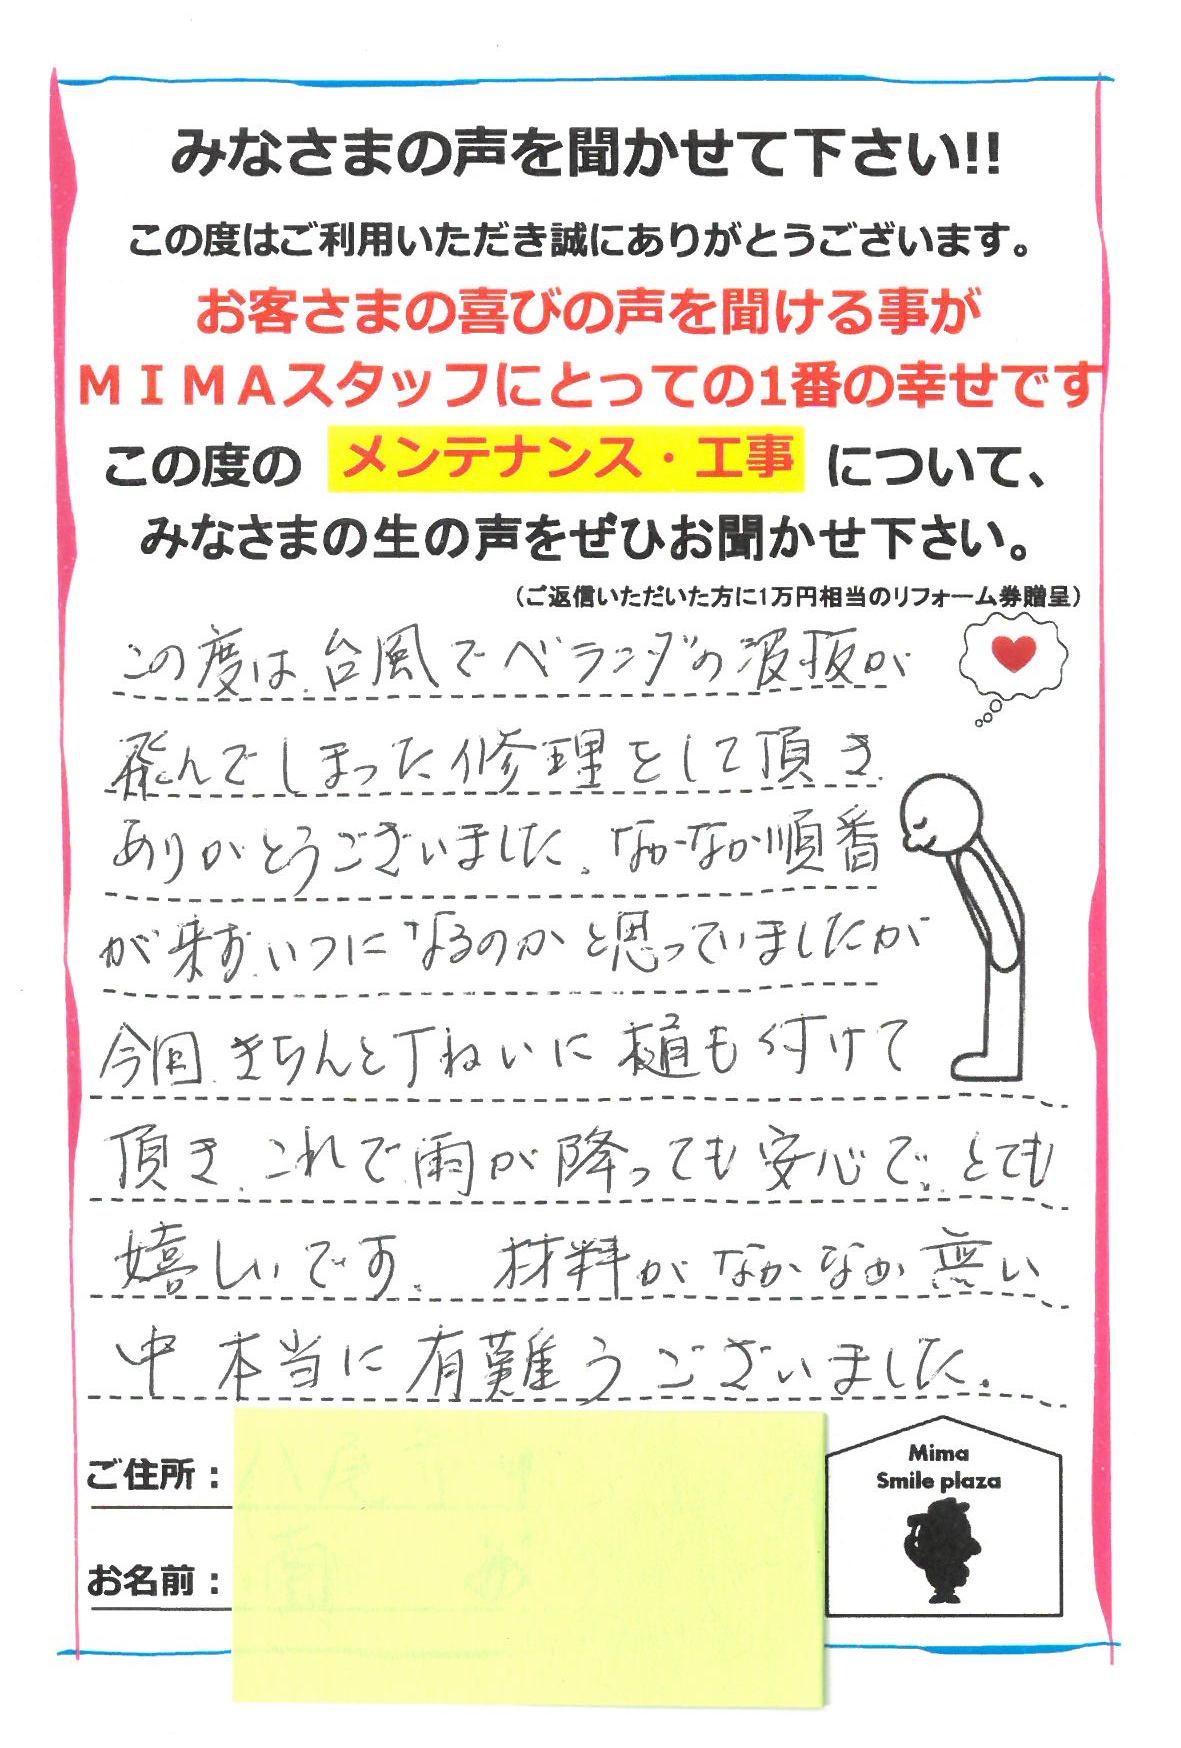 みなさまの声を聞かせて下さい!!
この度はご利用いただき誠にありがとうございます。
お客さまの喜びの声を聞ける事が
ＭＩＭＡスタッフにとっての1番の幸せです
この度の メンテナンス・工事 について、
みなさまの生の声をぜひお聞かせ下さい。
（ご返信いただいた方に1万円相当のリフォーム券贈呈）
この度は、台風でベランダの波板が
飛んでしまった修理をして頂き
ありがとうございました。なかなか順番
が来ず、いつになるのかと思っていましたが
今回、きちんと丁ねいに樋も付けて
頂き、これで雨が降っても安心で、とても
嬉しいです。材料がなかなか無い
中本当に有難うございました。
ご住所：
お名前：
Mima
Smile plaza